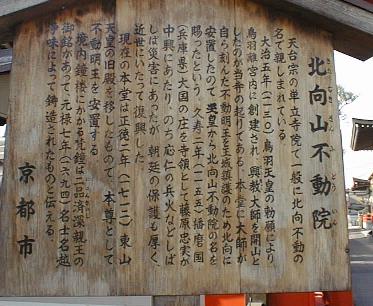 北向山不動院
天台宗の単立寺院で一般に北向不動の
名で親しまれている。
大治五年(一一三〇)鳥羽天皇の勅願により
鳥羽離宮内に創建され、興教大師を開山と
したのが当寺の起りである。本堂に大師が
自ら刻んだ不動明王を王城鎮護のため北向に
安置したので、天皇から北向山不動院の名を
賜ったという。久寿二年(一一五五)播磨国
(兵庫県)大国の庄を寺領として藤原忠実が
中興にあたり、のち応仁の兵火などしば
しば災害にあったが、朝廷の保護も厚く、
近世にいたって復興した。
現在の本堂は正徳二年(一七一二)東山
天皇の旧殿を移したもので、本尊として
不動明王を安置する。
境内鐘楼にかかる梵鐘は一品済深親王の
御銘があって、元禄七年(一六九四)名士名越
浄味によって鋳造されたものと伝える。
京都市